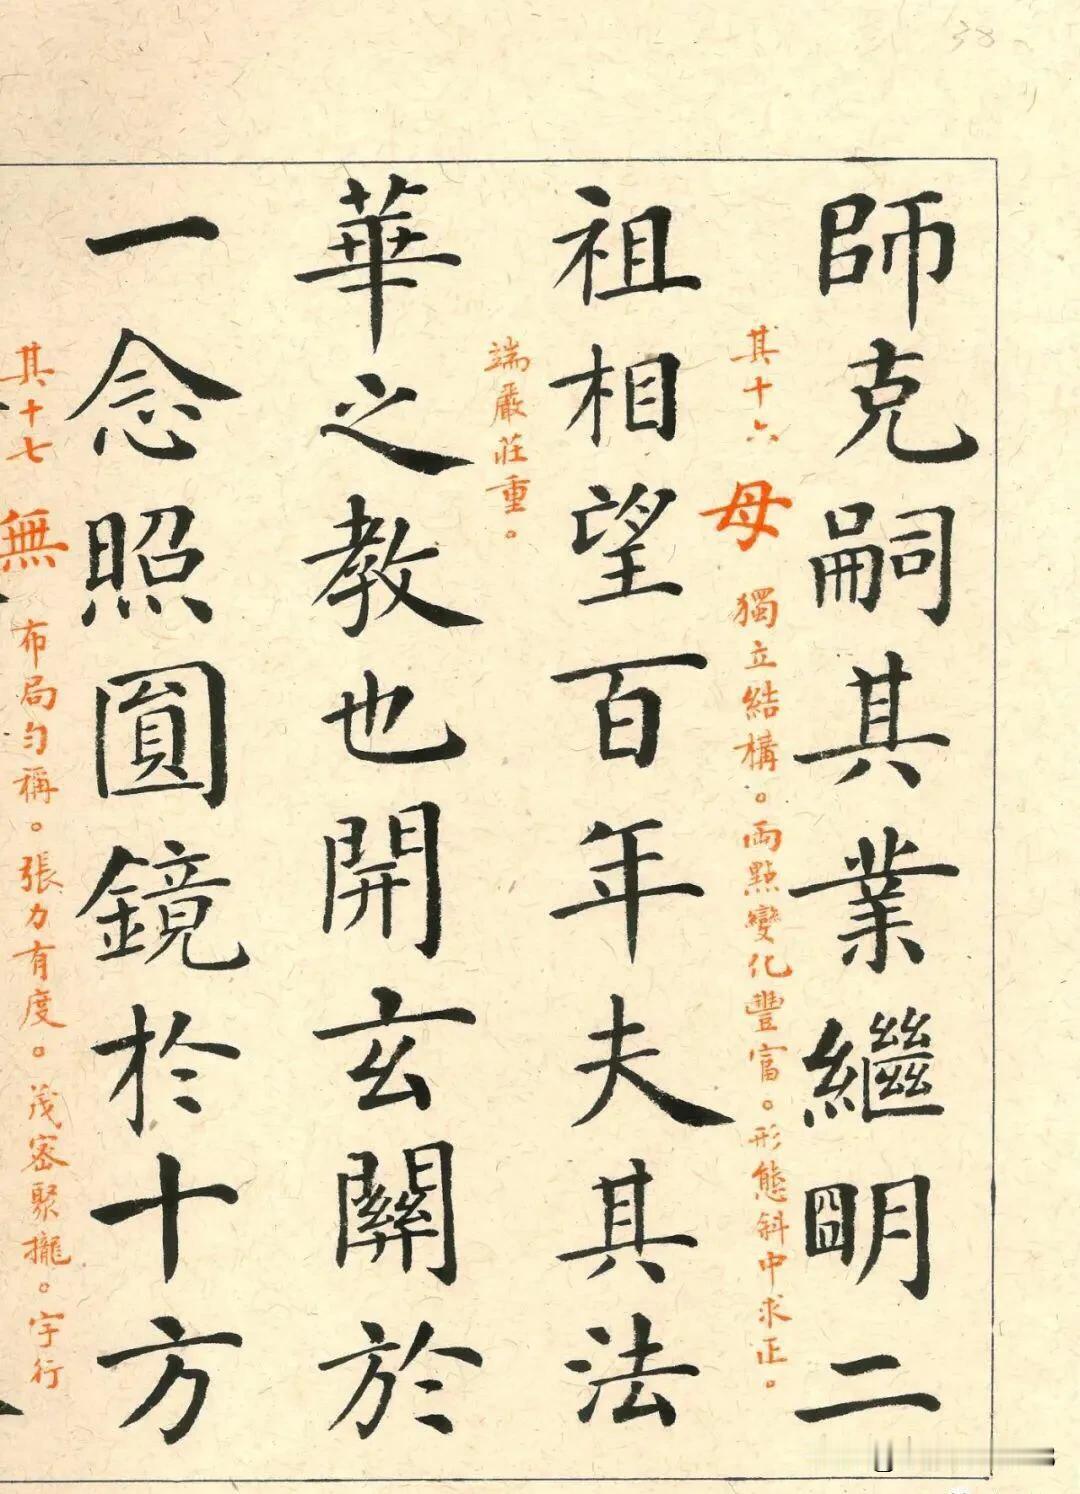 38
師克嗣其業繼明二
其十六 母 獨立結構。兩點變化豐富。形態斜中求正。
祖相望百年夫其法
端嚴莊重。
華之教也開玄關於
一念照圓鏡於十方
其十七 無 布局勻稱。張力有度。茂密聚攏。字行